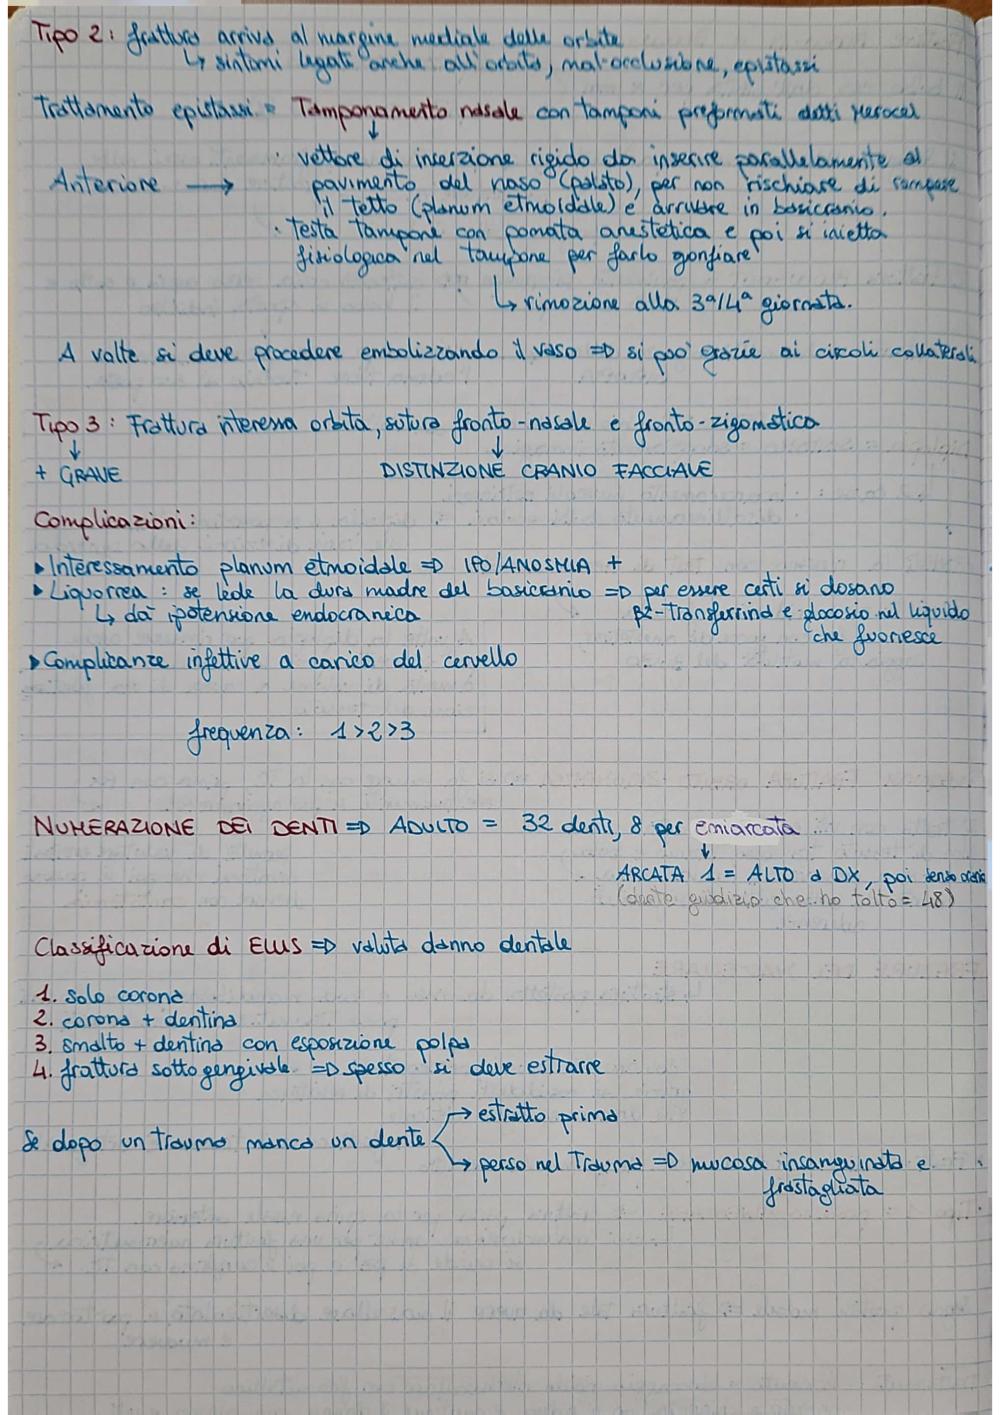 Tipo 2: frattura arriva al margine mediale delle orbite
↳ sintomi legati anche all'orbita, mal-occlusione, epistassi
Trattamento epistassi = Tamponamento nasale con tamponi preformati detti Merocel
↓
Anteriore → · vettore di inserzione rigido da inserire parallelamente al
pavimento del naso (palato), per non rischiare di rompere
il tetto (planum etmoidale) e arrivare in basicranio.
· Testa tampone con pomata anestetica e poi si inietta
fisiologica nel tampone per farlo gonfiare
↳ rimozione alla 3ª/4ª giornata.
A volte si deve procedere embolizzando il vaso => si può grazie ai circoli collaterali
Tipo 3: Frattura interessa orbita, sutura fronto-nasale e fronto-zigomatica
↓ ↓
+ GRAVE DISTINZIONE CRANIO FACCIALE
Complicazioni:
▸ Interessamento planum etmoidale => IPO/ANOSMIA +
▸ Liquorrea: se lede la dura madre del basicranio => per essere certi si dosano
↳ dà ipotensione endocranica β2-Transferrina e glucosio nel liquido
che fuoriesce
▸ Complicanze infettive a carico del cervello
frequenza: 1>2>3
NUMERAZIONE DEI DENTI => ADULTO = 32 denti, 8 per emiarcata
↓
ARCATA 1 = ALTO a DX, poi senso orario
(dente giudizio che ho tolto = 48)
Classificazione di ELLIS => valuta danno dentale
1. solo corona
2. corona + dentina
3. smalto + dentina con esposizione polpa
4. frattura sottogengivale => spesso si deve estrarre
→ estratto prima
Se dopo un trauma manca un dente
→ perso nel Trauma => mucosa insanguinata e
frastagliata